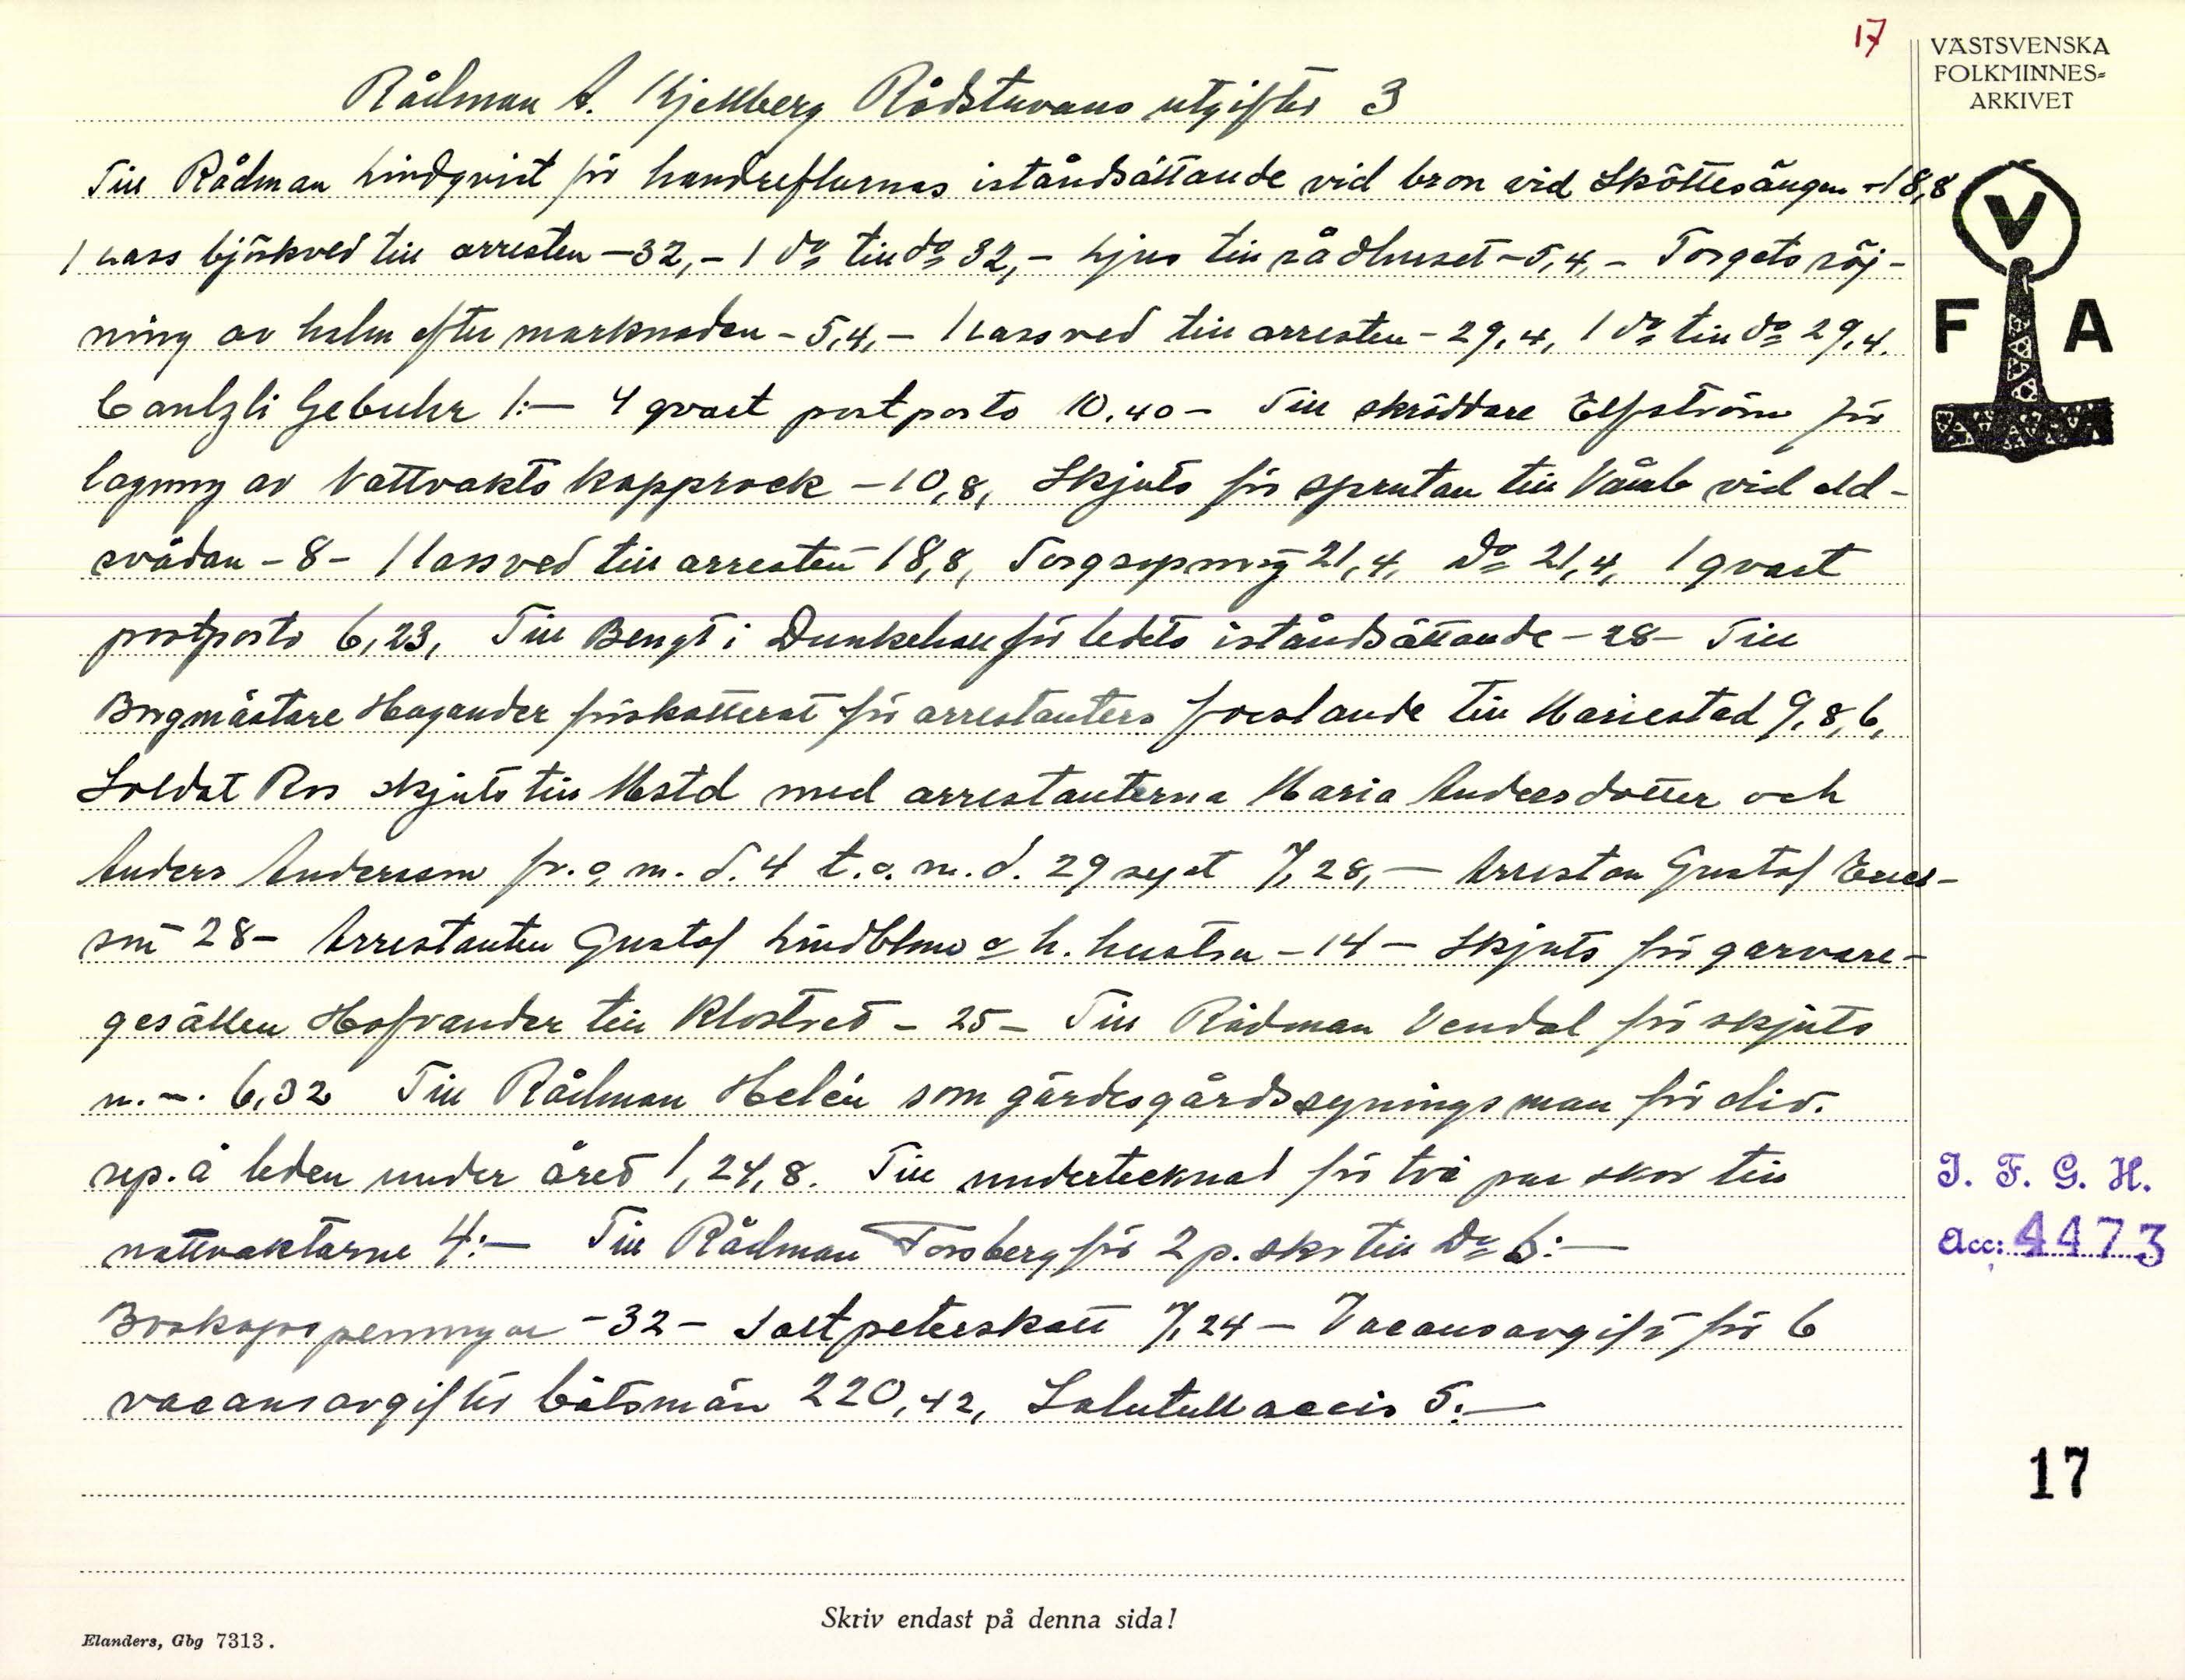 17
VÄSTSVENSKA
FOLKMINNES-
ARKIVET
V
F A
Rådman A. Kjellberg Rådstuvans utgifter 3
Till Rådman Lindqvist för handreflurnas iståndsättande vid bron vid Sköttesängen -18,8
1 Lass björkved till arresten -32,- 1 do till do 32,- Ljus till rådhuset -5,4,- Torgets röj-
ning av halm efter marknaden - 5,4,- 1 Lass ved till arresten - 29,4, 1 do till do 29,4.
Cantzli Gebuhr 1:- 4 qvart postporto 10.40 - Till skräddare Elfström för
lagning av Nattvakts kapprock - 10,8, Skjuts för sprutan till Våmb vid eld-
svådan - 8 - 1 lass ved till arresten 18,8, Torgsopning 21,4, do 21,4, 1 qvart
postporto 6,23, Till Bengt i Dunkehall för ledets iståndsättande - 28 - Till
Borgmästare Hagander förskotterat för arrestanters forslande till Mariestad 9,8,6,
Soldat Ros skjuts till Mstd med arrestanterna Maria Andersdotter och
Anders Andersson fr. o m. d. 4 t. o. m. d. 29 sept 7,28,- Arrestan Gustaf Erics-
son 28 - Arrestanten Gustaf Lindblmo o h. hustru - 14 - Skjuts för garvare-
gesällen Hofvander till Klostret - 25 - Till Rådman Vendal för skjuts
m. m. 6,32 Till Rådman Helén som gärdesgårdssyningsman för div.
rep. å leden under året 1,24,8. Till undertecknad för två par skor till
nattvaktarne 4:- Till Rådman Forsberg för 2 p. skor till do 6:-
Boskapspenningar - 32 - Saltpeterskatt 7,24 - Vacansavgift för 6
vacansavgifter båtsmän 220,42, Lalutull accis 5:-
I. F. G. H.
Acc: 4473
17
Skriv endast på denna sida!
Elanders, Gbg 7313.